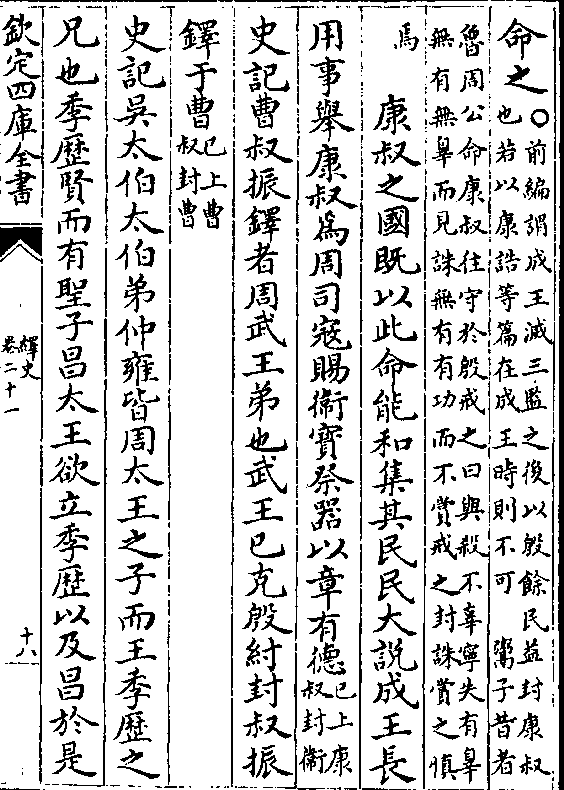 命之○前編謂成王滅三監之後以殷餘民益封康叔
也若以康誥等篇在成王時則不可 鬻子昔者
魯周公命康叔往守於殷戒之曰與殺不辜寧失有辠
無有無辠而見誅無有有功而不賞戒之封誅賞之慎
焉
康叔之國既以此命能和集其民民大說成王長
用事舉康叔為周司寇賜衞寶祭器以章有德已上康
叔封衞
史記曹叔振鐸者周武王弟也武王已克殷紂封叔振
鐸于曹已上曹
叔封曹
史記吳太伯太伯弟仲雍皆周太王之子而王季歷之
兄也季歷賢而有聖子昌太王欲立季歷以及昌於是
欽定四庫全書
繹史
卷二十一
十八